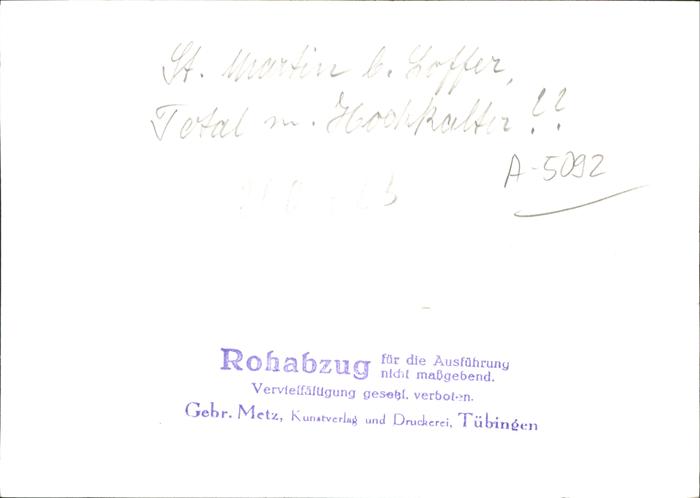 St. Martin b. Loffer,
Total m. Hochkalter??
A-5092
Rohabzug für die Ausführung
nicht maßgebend.
Vervielfältigung gesetzl. verboten.
Gebr. Metz, Kunstverlag und Druckerei, Tübingen